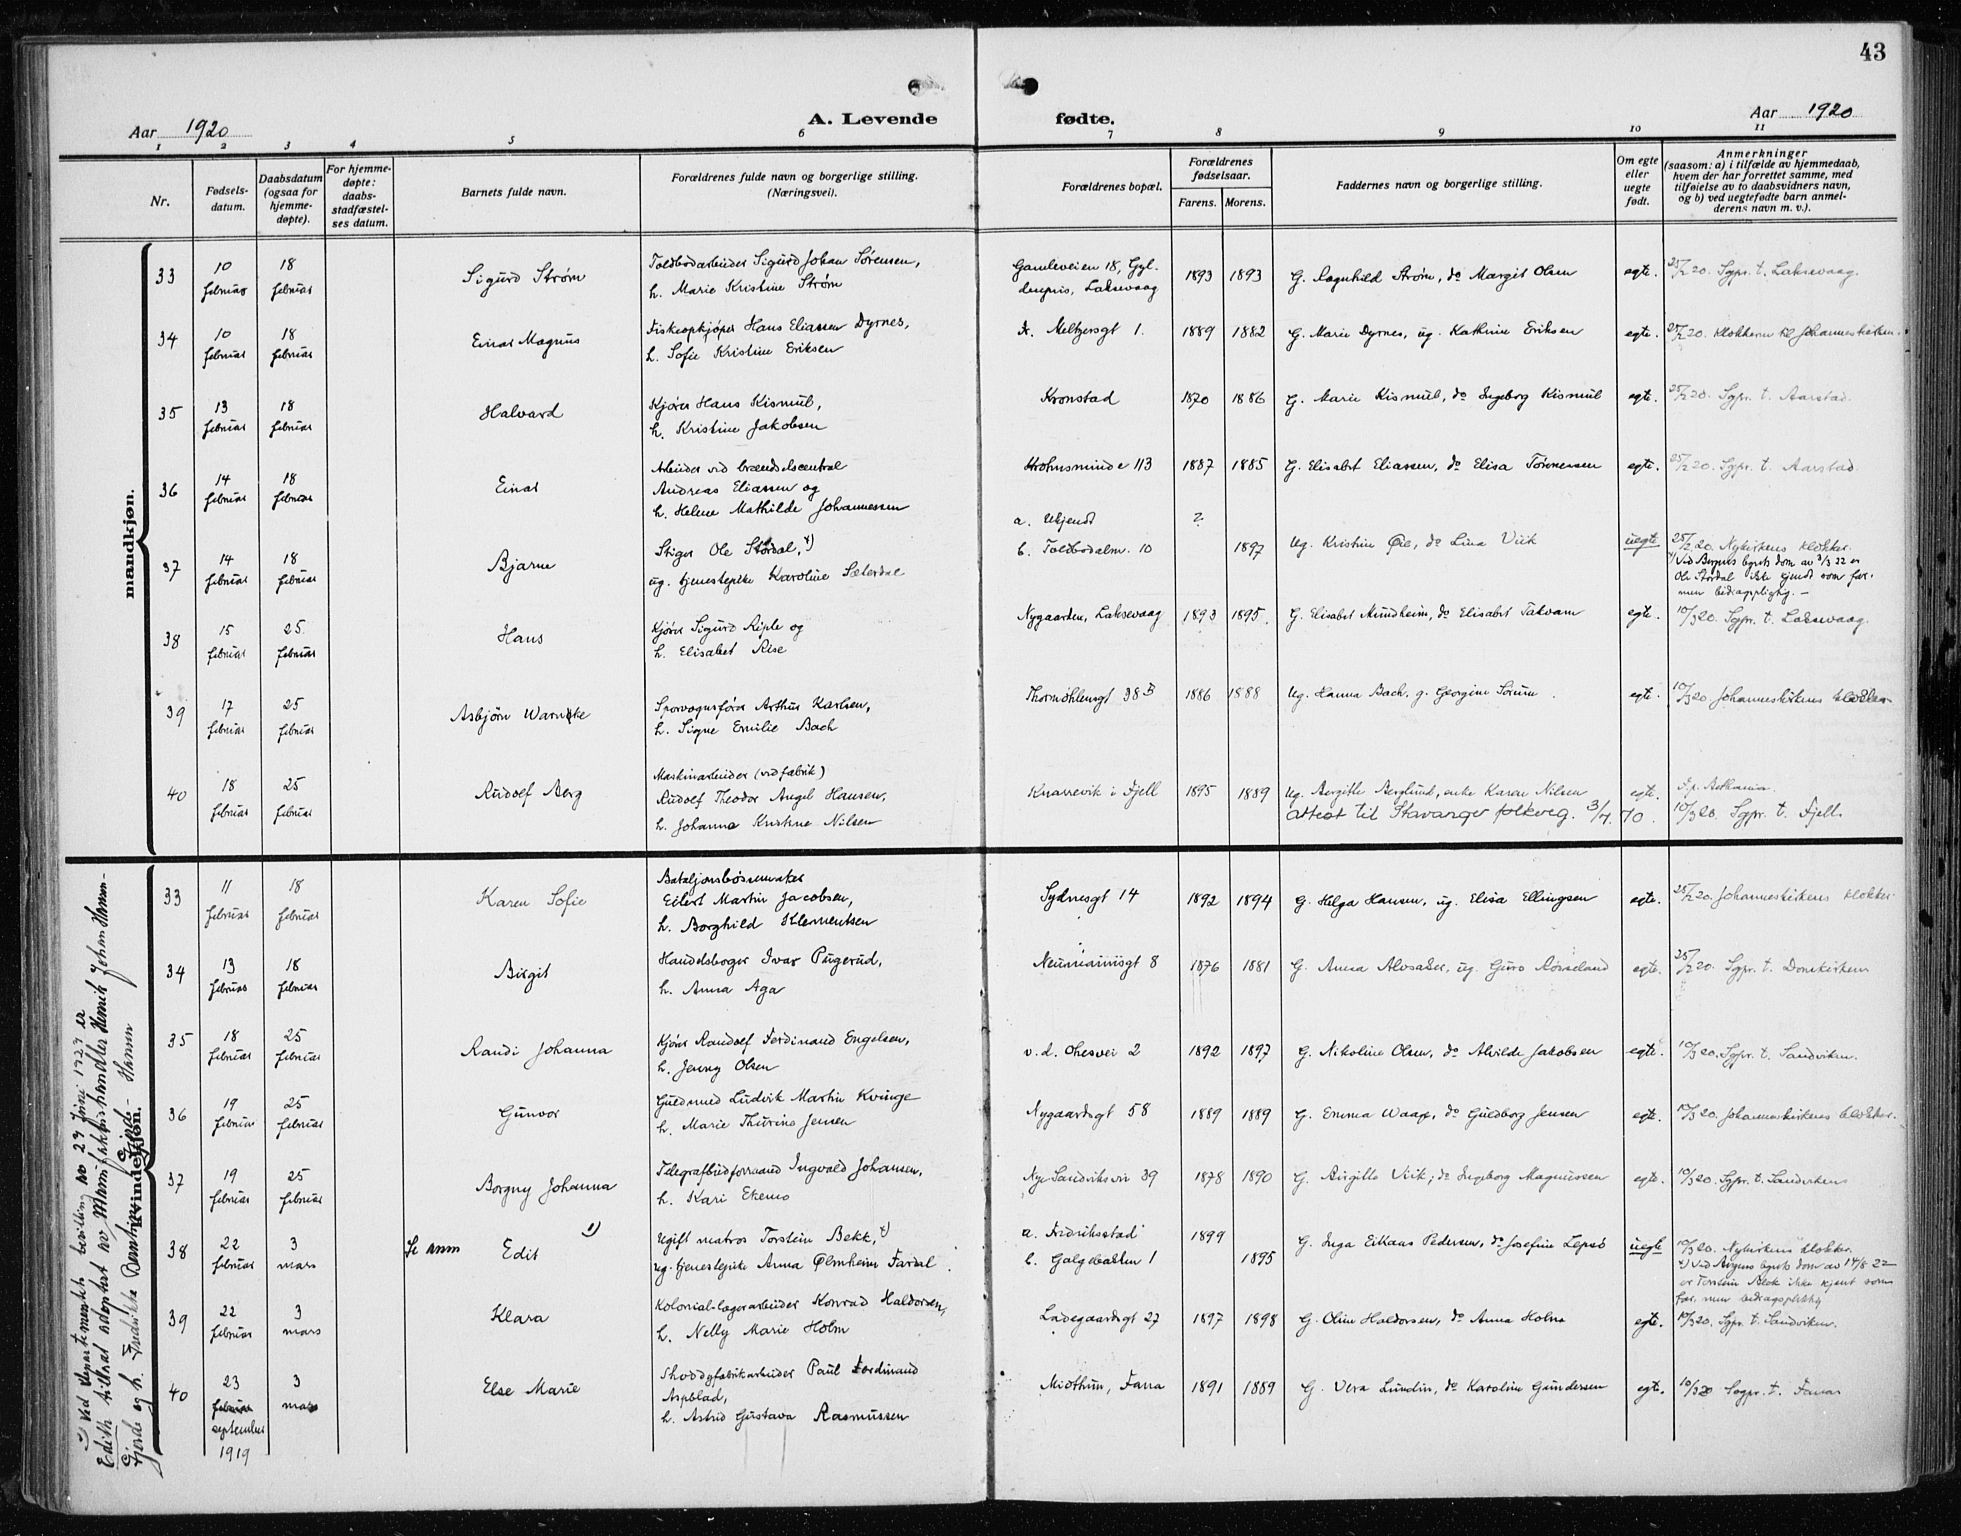 43
Aar 1920
A. Levende
fødte.
Aar 1920
1 2 3 4 5 6 7 8 9 10 11
Nr.
Fødsels-
datum.
Daabsdatum
(ogsaa for
hjemme-
døpte).
For hjemme-
døpte:
daabs-
stadfæstel-
ses datum.
Barnets fulde navn.
Forældrenes fulde navn og borgerlige stilling.
(Næringsvei).
Forældrenes bopæl.
Forældrenes
fødselsaar.
Farens. Morens.
Faddernes navn og borgerlige stilling.
Om egte
eller
uegte
født.
Anmerkninger
(saasom: a) i tilfælde av hjemmedaab,
hvem der har forrettet samme, med
tilføielse av to daabsvidners navn,
og b) ved uegtefødte barn anmel-
derens navn m. v.).
mandkjøn.
33 10 februar 18 februar Sigurd Strøm
Toldbodarbeider Sigurd Johan Sørensen,
h. Marie Kristine Strøm
Gamleveien 18, Gyl-
denpris, Laksevaag
1893 1893 G. Ragnhild Strøm, do Margit Olsen egte. 25/2 20. Sgpr. t. Laksevaag.
34 10 februar 18 februar Einar Magnus
Fiskeopkjøper Hans Eliassen Dyrnes,
h. Sofie Kristine Eriksen
Fr. Meltzersgt 1. 1889 1882 G. Marie Dyrnes, ug. Kathrine Eriksen egte. 25/2 20. Klokkeren til Johanneskirken.
35 13 februar 18 februar Halvard
Kjører Hans Kismul,
h. Kristine Jakobsen
Kronstad 1870 1886 G. Marie Kismul, do Ingeborg Kismul egte. 25/2 20. Sgpr. t. Aarstad.
36 14 februar 18 februar Einar
Arbeider ved brændselscentral
Andreas Eliassen og
h. Helene Mathilde Johannessen
Krohnsminde 113 1887 1885 G. Elisabet Eliassen, do Elisa Tønnessen egte. 25/2 20. Sgpr. t. Aarstad.
37 14 februar 18 februar Bjarne
Stiger Ole Størdal, 1)
ug. tjenestepike Karoline Sæterdal
a. Ukjendt ?
b. Toldbodalm. 10 1897 Ug. Kristine Øie, do Lina Viik uegte 25/2 20. Nykirkens klokker.
1) Ved Bergens byrets dom av 3/3 22 er
Ole Stordal ikke kjendt som far.
men bidragspligtig. —
38 15 februar 25 februar Hans
Kjører Sigurd Riple og
h. Elisabet Rise
Nygaarden, Laksevaag 1893 1895. G. Elisabet Mundheim, do Elisabet Takvam egte. 10/3 20. Sgpr. t. Laksevaag.
39 17 februar 25 februar Asbjørn Warncke
Sporvognsfører Arthur Karlsen,
h. Signe Emilie Bach
Thormøhlensgt 38 B 1886 1888 Ug. Hanna Bach, g. Georgine Sørum egte. 10/3 20 Johanneskirkens klokker.
40 18 februar 25 februar Rudolf Berg
Maskinarbeider (ved fabrik)
Rudolf Theodor Angel Hansen,
h. Johanna Kristine Nilsen
Knarrevik i Fjell 1895 1889 Ug. Bergitte Berglund, enke Karen Nilsen egte. F.p. Bethania.
Attest til Stavanger folkereg. 3/4 70. 10/3 20. Sgpr. t. Fjell
kvindekjøn.
33 11 februar 18 februar Karen Sofie
Bataljonsbøssemaker
Eilert Martin Jacobsen,
h. Borghild Klementsen
Sydnesgt 14 1892 1894 G. Helga Hansen, ug. Elisa Ellingsen egte. 25/2 20. Johanneskirkens klokker
34 13 februar 18 februar Birgit
Handelsborger Ivar Pugerud,
h. Anna Aga
Neumannsgt 8 1876 1881 G. Anna Alvsaker, ug. Guro Rørseland egte. 25/2 20. Sgpr. t. Domkirken
35 18 februar 25 februar Randi Johanna
Kjører Randolf Ferdinand Engelsen,
h. Jenny Olsen
v. d. Lhesvei 2 1892 1897 G. Nikoline Olsen, do Alvilde Jakobsen egte. 10/3 20. Sgpr. t. Sandviken.
36 19 februar 25 februar Gunvor
Guldsmed Ludvik Martin Kvinge
h. Marie Thurine Jensen
Nygaardsgt 58 1889 1889 G. Emma Waage, do Guldborg Jensen egte. 10/3 20. Johanneskirkens klokker.
37 19 februar 25 februar Borgny Johanna
Telegrafbudformand Ingvald Johansen,
h. Kari Ekemo
Nye Sandviksvei 39 1878 1890 G. Birgitte Viik; do Ingeborg Magnussen egte. 10/3 20. Sgpr. t. Sandviken
38 22 februar 3 mars Se anm Edit 1)
Ugift matros Torstein Bekk, 2)
ug. tjenestepike Anna Ølmheim Fardal.
a. Fredriksstad 1899
b. Galgebakken 1 1895 G. Inga Eikaas Pedersen, do Josefine Lepsø uegte 10/3 20. Nykirkens klokker.
2) Ved Bergens byrets dom av 14/8 22
er Torstein Bekk ikke kjent som
far, men bidragspliktig
39 22 februar 3 mars Klara
Kolonial-lagerarbeider Konrad Haldorsen,
h. Nelly Marie Holm
Ladegaardsgt 27 1897 1898 G. Oline Haldorsen, do Anna Holm egte. 10/3 20. Sgpr. t. Sandviken.
40 23 februar september 1919 3 mars Else Marie
Shoddyfabrikarbeider Paul Ferdinand
Aspblad,
h. Astrid Gustava Rasmussen
Midttun, Fana 1891 1889 G. Vera Lundin, do Karoline Gundersen egte. 10/3 20 Sogpr. t. Fana
1) Ved departementets bevilling av 29 juni 1929 er
Edith tillatt adoptert av Henrik Johan Hansen-
Gjerde og h. Fredrikke Gjerde-Hansen